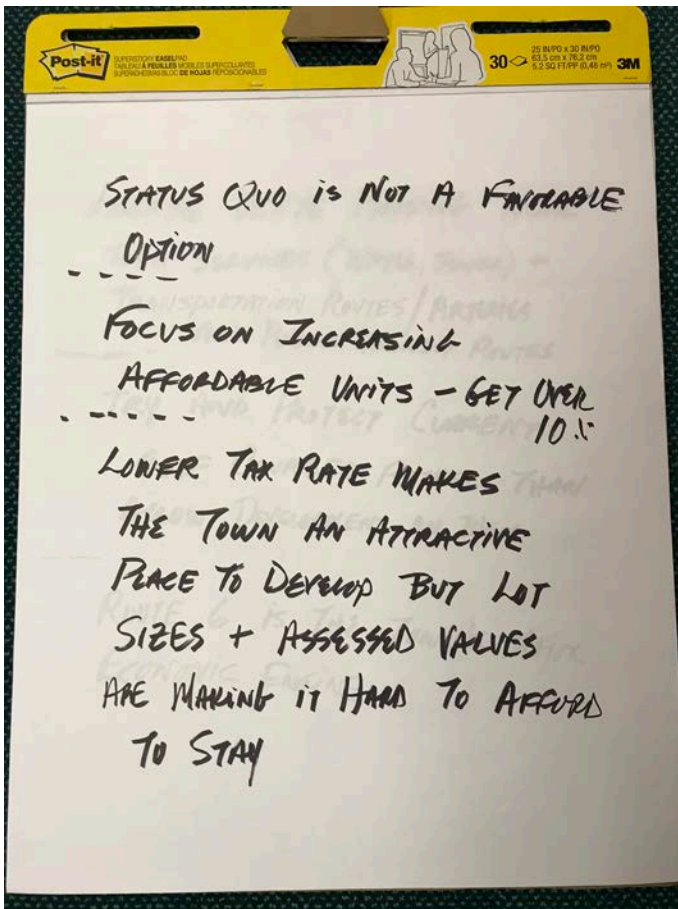 Post-it
SUPERSTICKY EASEL PAD
TABLEAU À FEUILLES MOBILES SUPERCOLLANTES
SUPERADHESIVAS BLOC DE HOJAS REPOSICIONABLES
30
25 IN/PO x 30 IN/PO
63,5 cm x 76,2 cm
5.2 SQ FT/PP (0,48 m²)
3M
STATUS QUO is NOT A FAVORABLE
OPTION
FOCUS ON INCREASING
AFFORDABLE UNITS - GET OVER
10%
LOWER TAX RATE MAKES
THE TOWN AN ATTRACTIVE
PLACE TO DEVELOP BUT LOT
SIZES + ASSESSED VALUES
ARE MAKING IT HARD TO AFFORD
TO STAY
TRANSPORTATION ROUTES/ARTERIES
ROUTES
TRY AND PROTECT CURRENT
THAN
ROUTE 6 IS THE
ECONOMIC